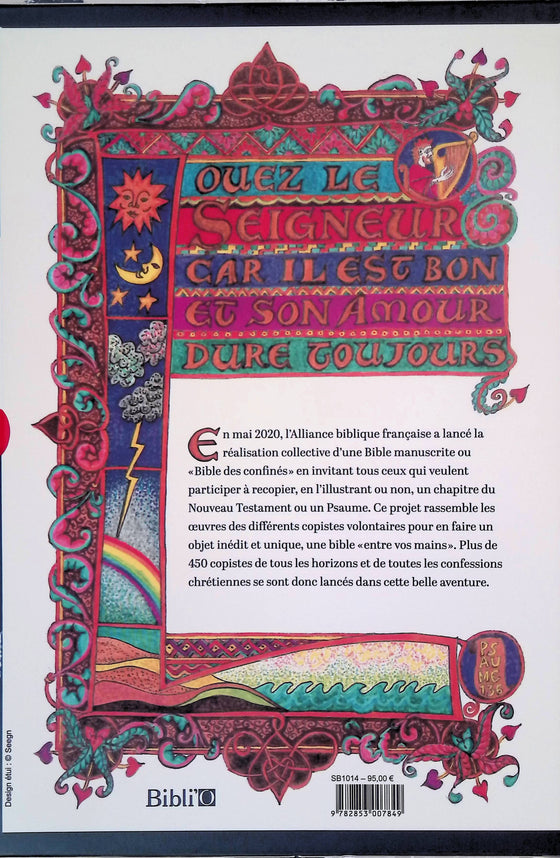 OUEZ LE
SEIGNEUR
CAR IL EST BON
ET SON AMOUR
DURE TOUJOURS
En mai 2020, l'Alliance biblique française a lancé la
réalisation collective d'une Bible manuscrite ou
«Bible des confinés» en invitant tous ceux qui veulent
participer à recopier, en l'illustrant ou non, un chapitre du
Nouveau Testament ou un Psaume. Ce projet rassemble les
œuvres des différents copistes volontaires pour en faire un
objet inédit et unique, une bible «entre vos mains». Plus de
450 copistes de tous les horizons et de toutes les confessions
chrétiennes se sont donc lancés dans cette belle aventure.
PS
AU
ME
136
Design étui : © Seegn
Bibli'O
SB1014 – 95,00 €
9 782853 007849